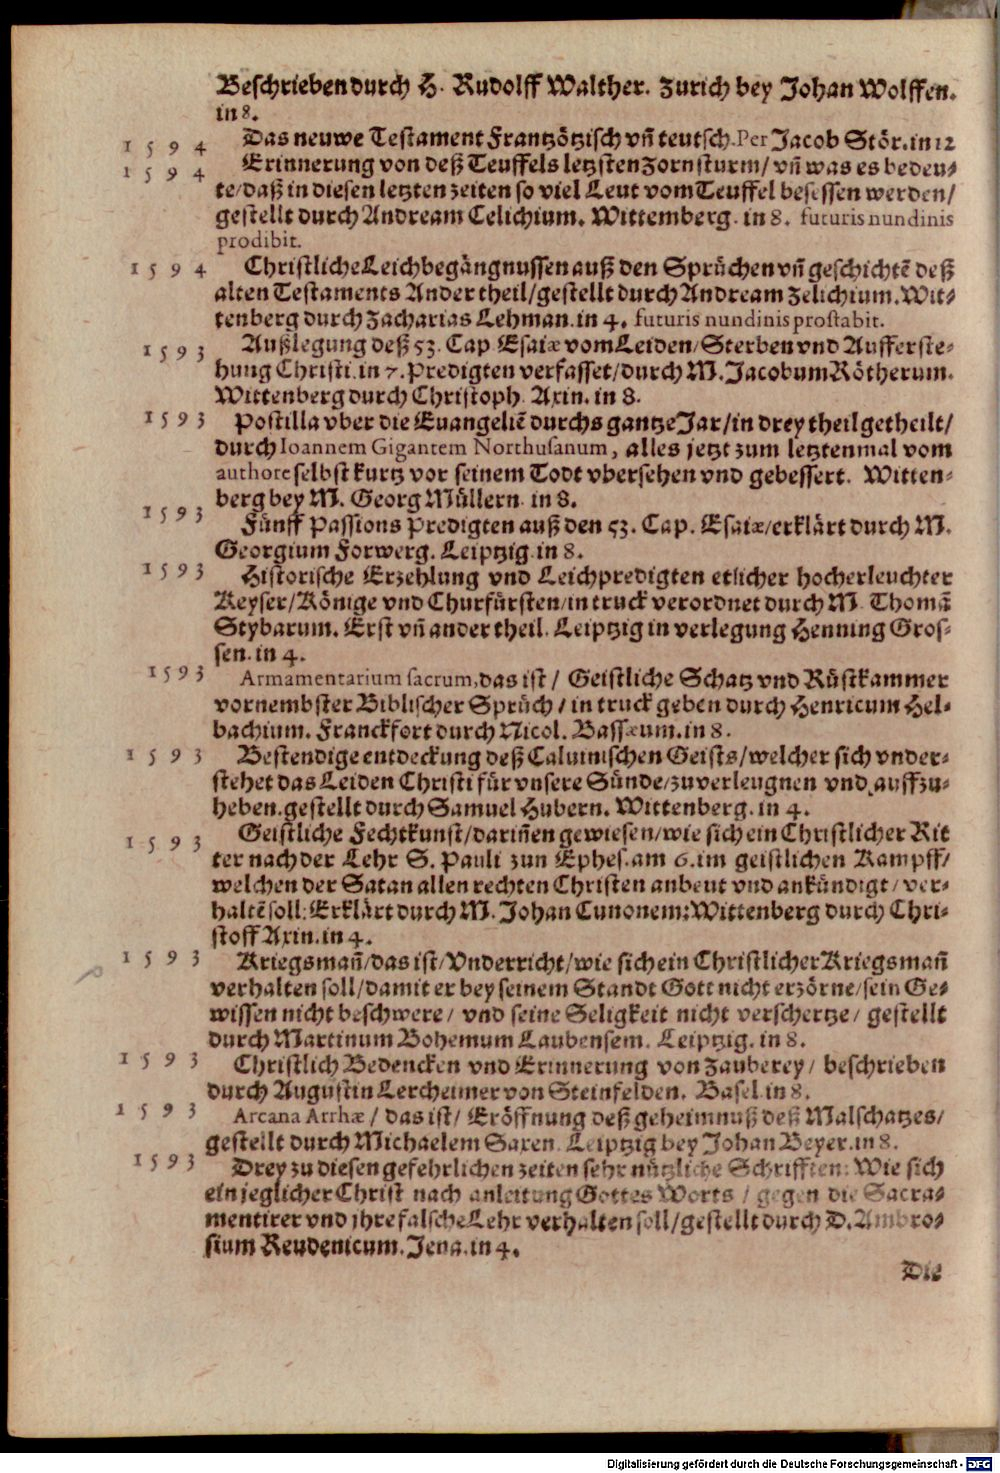 Beschrieben durch H. Rudolff Walther. Zurich bey Johan Wolffen.
in 8.
1594 Das neuwe Testament Frantzötzisch vñ teutsch. Per Jacob Stör. in 12
1594 Erinnerung von deß Teuffels letzsten Zornsturm/ vñ was es bedeu-
te/ daß in diesen letzten zeiten so viel Leut vom Teuffel besessen werden/
gestellt durch Andream Celichium. Wittemberg. in 8. futuris nundinis
prodibit.
1594 Christliche Leichbegängnussen auß den Sprüchen vñ geschichtẽ deß
alten Testaments Ander theil/ gestellt durch Andream Zelichium. Wit-
tenberg durch Zacharias Lehman. in 4. futuris nundinis prostabit.
1593 Außlegung deß 53. Cap Esaiæ vom Leiden/ Sterben vnd Aufferste-
hung Christi. in 7. Predigten verfasset/ durch M. Jacobum Rötherum.
Wittenberg durch Christoph. Axin. in 8.
1593 Postilla vber die Euangeliẽ durchs gantze Jar/ in drey theil getheilt/
durch Ioannem Gigantem Northusanum, alles jetzt zum letztenmal vom
authore selbst kurtz vor seinem Todt vbersehen vnd gebessert. Witten-
berg bey M. Georg Müllern. in 8.
1593 Fünff Passions Predigten auß den 53. Cap. Esaiæ/ erklärt durch M.
Georgium Forwerg. Leiptzig. in 8.
1593 Historische Erzehlung vnd Leichpredigten etlicher hocherleuchter
Keyser/ Könige vnd Churfürsten/ in truck verordnet durch M. Thomã
Stybarum. Erst vñ ander theil. Leiptzig in verlegung Henning Gros-
sen. in 4.
1593 Armamentarium sacrum, das ist/ Geistliche Schatz vnd Rüstkammer
vornembster Biblischer Sprüch/ in truck geben durch Henricum Hel-
bachium. Franckfort durch Nicol. Bassæum. in 8.
1593 Bestendige entdeckung deß Caluinischen Geists/ welcher sich vnder-
stehet das Leiden Christi für vnsere Sünde/ zuverleugnen vnd auffzu-
heben. gestellt durch Samuel Hubern. Wittenberg. in 4.
1593 Geistliche Fechtkunst/ dariñen gewiesen/ wie sich ein Christlicher Rit
ter nach der Lehr S. Pauli zun Ephes. am 6. im geistlichen Kampff/
welchen der Satan allen rechten Christen anbeut vnd ankündigt/ ver-
haltẽ soll: Erklärt durch M. Johan Cunonem: Wittenberg durch Chri-
stoff Axin. in 4.
1593 Kriegsmañ/ das ist/ Vnderricht/ wie sich ein Christlicher Kriegsmañ
verhalten soll/ damit er bey seinem Standt Gott nicht erzörne/ sein Ge-
wissen nicht beschwere/ vnd seine Seligkeit nicht verschertze/ gestellt
durch Martinum Bohemum Laubensem. Leiptzig. in 8.
1593 Christlich Bedencken vnd Erinnerung von Zauberey/ beschrieben
durch Augustin Lercheimer von Steinfelden. Basel. in 8.
1593 Arcana Arrhæ/ das ist/ Eröffnung deß geheimnuß deß Malschatzes/
gestellt durch Michaelem Saxen. Leiptzig bey Johan Beyer. in 8.
1593 Drey zu diesen gefehrlichen zeiten sehr nützliche Schrifften: Wie sich
ein jeglicher Christ nach anleitung Gottes Worts/ gegen die Sacra-
mentirer vnd jhre falsche Lehr verhalten soll/ gestellt durch D. Ambro-
sium Reudenicum. Jena. in 4.
Die
Digitalisierung gefördert durch die Deutsche Forschungsgemeinschaft - DFG